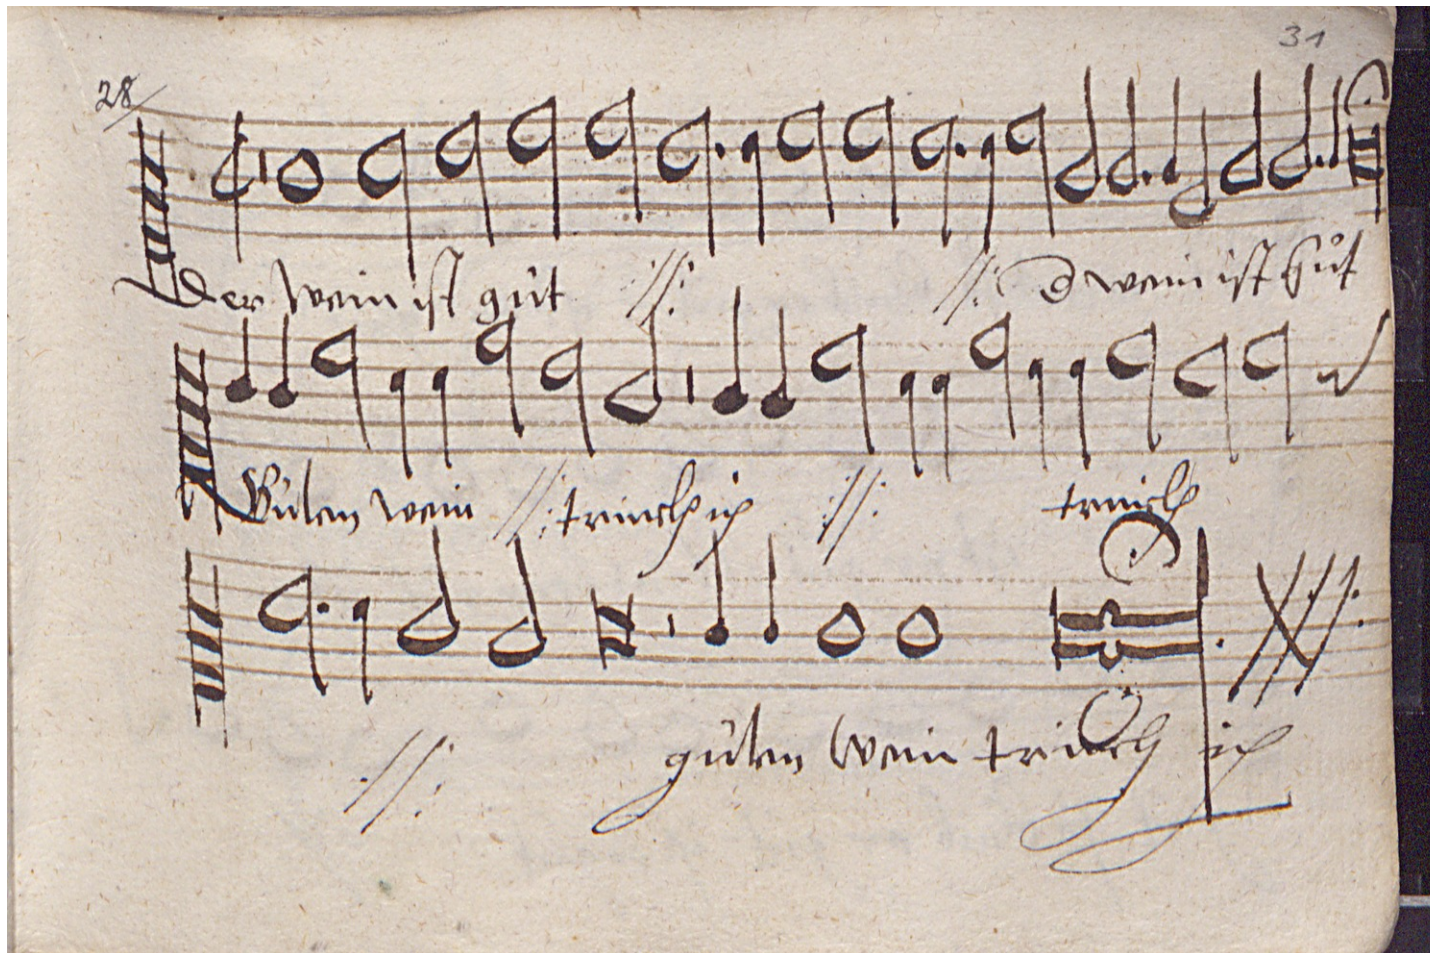 31
28
Der wein ist gůt //: //: d wein ist gůt
Gůten wein //: trinckh ich //: trinckh
//: gůten wein trinckh ich